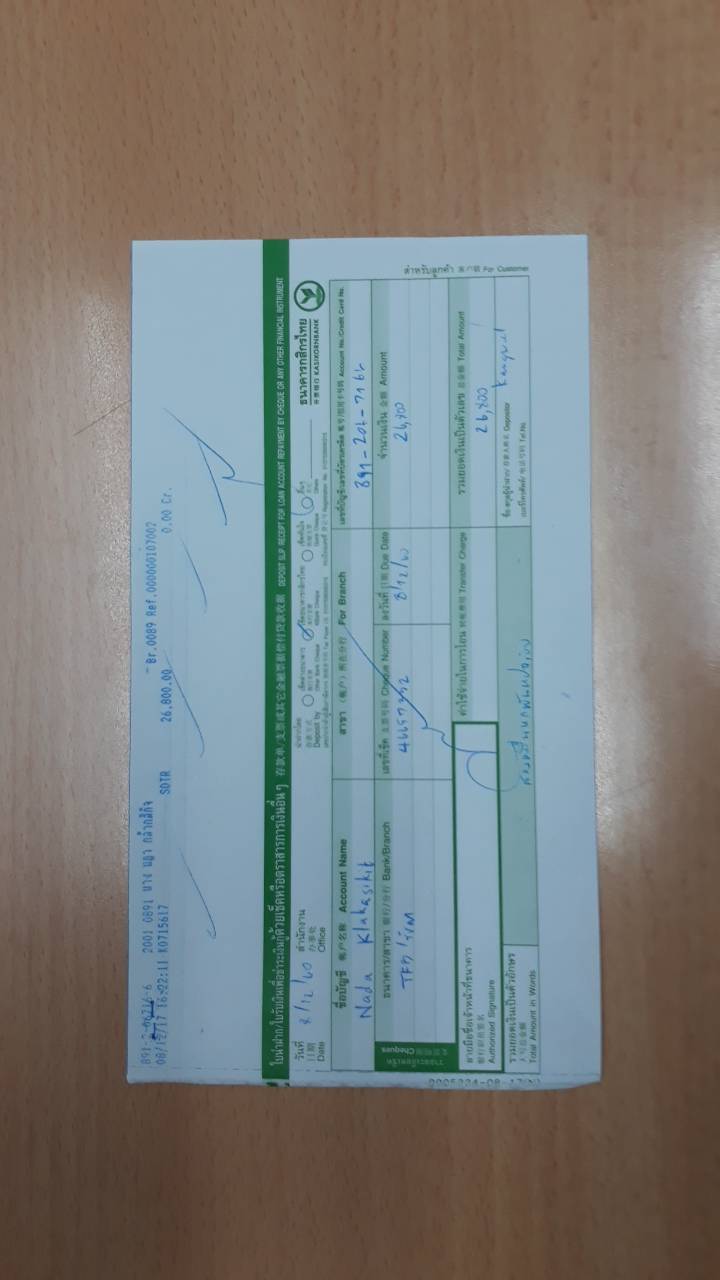 891-2-06716-6 2001 0891 นาง นฎา กล้ากสิกิจ Br.0089 Ref.000000107002
08/12/17 16:22:11 K0715617 SDTR 26,800.00 0.00 Cr.
ใบนำฝาก/ใบรับเงินเพื่อชำระเงินกู้ด้วยเช็คหรือตราสารการเงินอื่นๆ 存款单/支票或其它金融票据偿付贷款收据 DEPOSIT SLIP, RECEIPT FOR LOAN ACCOUNT REPAYMENT BY CHEQUE OR ANY OTHER FINANCIAL INSTRUMENT
วันที่ 日期 Date 8/12/60 สำนักงาน 办事处 Office
นำฝากโดย 存款方式 Deposit by เช็คต่างธนาคาร Other Bank Cheque เช็คธนาคารกสิกรไทย KBank Cheque เช็คทันใจ Quick Cheque อื่นๆ Others
ธนาคารกสิกรไทย
开泰银行 KASIKORNBANK
ชื่อบัญชี 帐户名称 Account Name สาขา (帐户) 所在分行 For Branch เลขที่บัญชี/เลขที่บัตรเครดิต 帐号/信用卡号码 Account No./Credit Card No.
Nada Klakasikit
รายละเอียดเช็ค 支票明细 Cheques
ธนาคาร/สาขา 银行/分行 Bank/Branch เลขที่เช็ค 支票号码 Cheque Number ลงวันที่ 日期 Due Date จำนวนเงิน 金额 Amount
8/12/60 26,800
ลายมือชื่อเจ้าหน้าที่ธนาคาร
银行职员签名
Authorized Signature
ค่าใช้จ่ายในการโอน 转帐费用 Transfer Charge
รวมยอดเงินเป็นตัวเลข 总金额 Total Amount
26,800
รวมยอดเงินเป็นตัวอักษร
大写总金额
Total Amount in Words
สองหมื่นหกพันแปดร้อย
ชื่อ สกุลผู้นำฝาก/ 存款人姓名 Depositor
เบอร์โทรศัพท์/ 电话号码 Tel.No.
สำหรับลูกค้า 客户联 For Customer